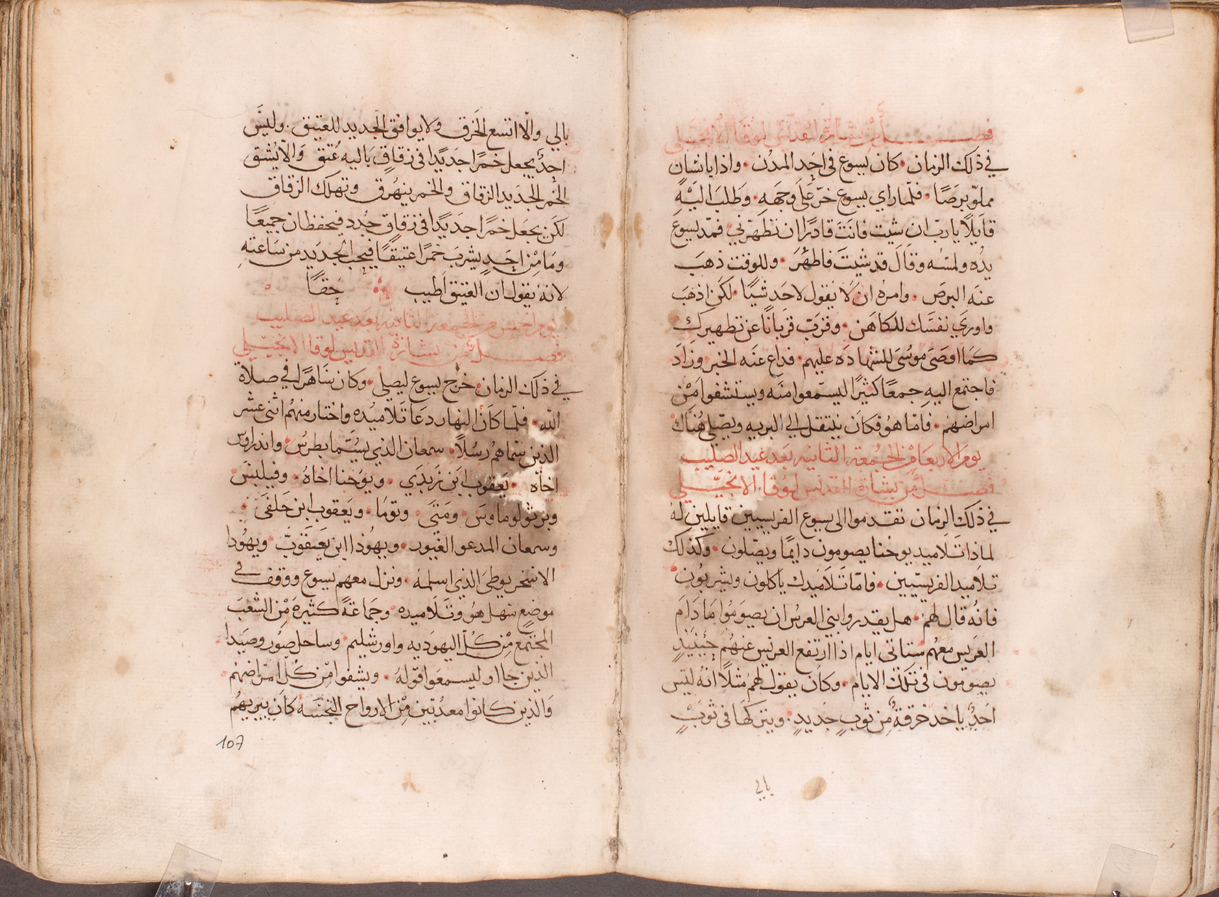 فصل من بشارة القديس لوقا الانجيلي
في ذلك الزمان كان يسوع في احد المدن واذا بانسان
مملو برصًا فلما راي يسوع خرّ علي وجهه وطلب اليه
قايلًا يا رب ان شيت فانت قادرًا ان تطهرني فمد يسوع
يده ولمسه وقال قد شيت فاطهر وللوقت ذهب
عنه البرص وامره ان لا يقول لاحد شيًا لكن اذهب
واوري نفسك للكاهن وقرب قربانًا عن تطهيرك
كما اوصي موسي للشهاده عليهم فذاع عنه الخبر وزاد
فاجتمع اليه جمعًا كثيرًا ليسمعوا منه ويستشفوا من
امراضهم فاما هو فكان ينتقل الي البريه ويصلي هناك
يوم الاربعا من الجمعة الثانيه بعد عيد الصليب
فصل من بشارة القديس لوقا الانجيلي
في ذلك الزمان تقدموا الي يسوع الفريسيين قايلين له
لماذا تلاميد يوحنا يصومون دايمًا ويصلون وكذلك
تلاميد الفريسيين فاما تلاميدك ياكلون ويشربون
فانه قال لهم هل يقدروا بني العرس ان يصوموا ما دام
العريس معهم ستاتي ايام اذا ارتفع العريس عنهم حينيدٍ
يصومون في تلك الايام وكان يقول لهم مثلًا انه ليس
احدٌ ياخد خرقةً من ثوبٍ جديدٍ ويتركها في ثوبٍ
بالي
بالي والا اتسع الخرق ولا يوافق الجديد للعتيق وليس
احدٌ يجعل خمرًا جديدًا في زقاقٍ باليه عُتق والا يشق
الخمر الجديد الزقاق والخمر ينهرق وتهلك الزقاق
لكن يجعل خمرًا جديدًا في زقاقٍ جُددٍ فيحفظان جميعًا
وما من احدٍ يشرب خمرًا عتيقًا فيحب الجديد من ساعته
لانه يقول ان العتيق اطيب حقًا
يوم الخميس من الجمعه الثانيه بعد عيد الصليب
فصل من بشارة القديس لوقا الانجيلي
في ذلك الزمان خرج يسوع ليصلي وكان ساهرًا في صلاة
الله فلما كان النهار دعا تلاميده واختار منهم اثني عشر
الذين سماهم رسُلًا سمعان الذي يسما بطرس واندراوس
اخاه يعقوب ابن زبدي ويوحنا اخاه وفيلبس
وبرثولوماوس ومتي وتوما ويعقوب ابن حلفي
وسمعان المدعو الغيور ويهودا ابن يعقوب ويهودا
الاسخريوطي الذي اسلمه ونزل معهم يسوع ووقف في
موضعٍ سهل هو وتلاميده وجماعةً كثيرة من الشعب
المجتمع من كل اليهوديه واورشليم وساحل صور وصيدا
الذين جاوا ليسمعوا قوله ويشفوا من كل امراضهم
والذين كانوا معذبين من الارواح النجسه كان يبريهم
107